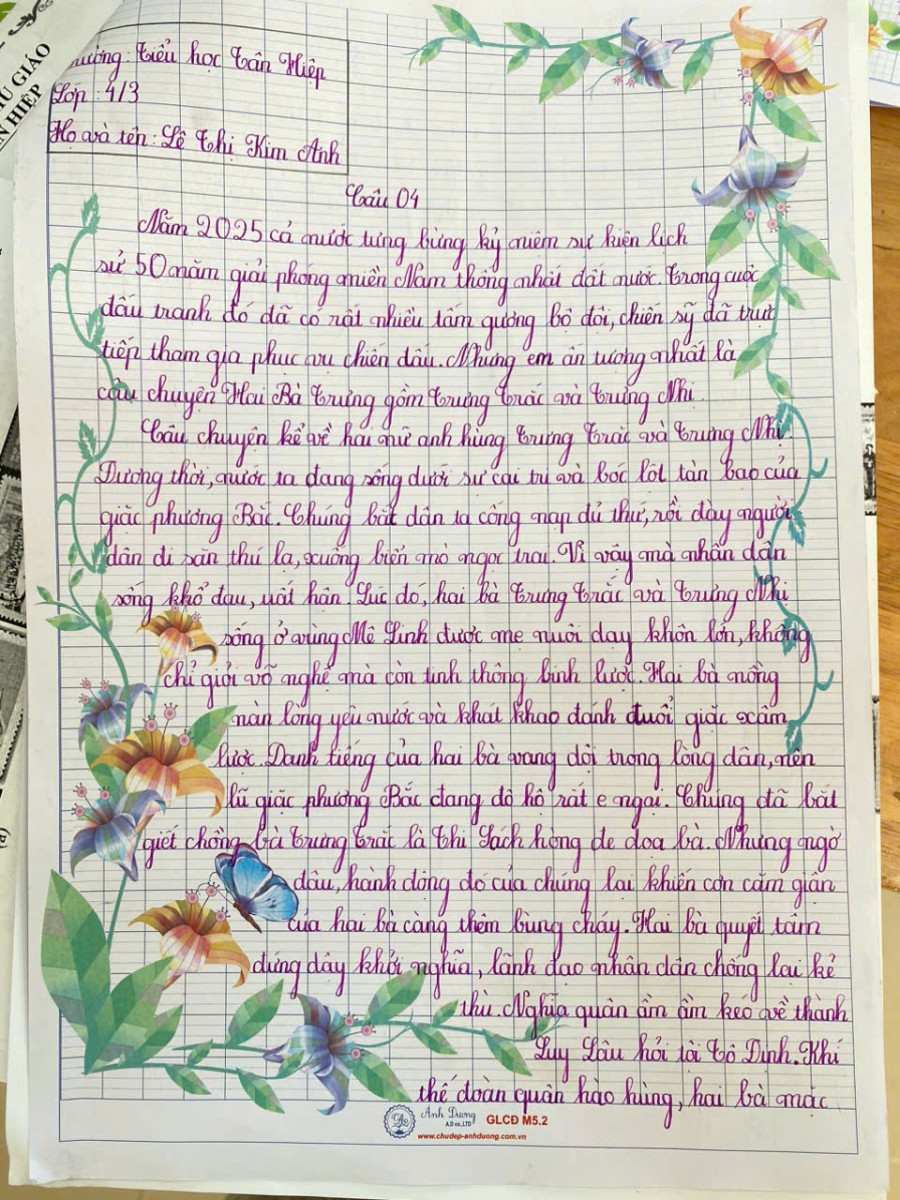 Ủ GIÁO
N HIỆP
Trường: Tiểu học Tân Hiệp
Lớp: 4/3
Họ và tên: Lê Thị Kim Anh
Câu 04
Năm 2025 cả nước tưng bừng kỷ niệm sự kiện lịch
sử 50 năm giải phóng miền Nam thống nhất đất nước. Trong cuộc
đấu tranh đó đã có rất nhiều tấm gương bộ đội, chiến sỹ đã trực
tiếp tham gia phục vụ chiến đấu. Nhưng em ấn tượng nhất là
câu chuyện Hai Bà Trưng gồm Trưng Trắc và Trưng Nhị.
Câu chuyện kể về hai nữ anh hùng Trưng Trắc và Trưng Nhị.
Dương thời, nước ta đang sống dưới sự cai trị và bóc lột tàn bạo của
giặc phương Bắc. Chúng bắt dân ta cống nạp đủ thứ, rồi đày người
dân đi săn thú lạ, xuống biển mò ngọc trai. Vì vậy mà nhân dân
sống khổ đau, uất hận. Lúc đó, hai bà Trưng Trắc và Trưng Nhị
sống ở vùng Mê Linh được mẹ nuôi dạy khôn lớn, không
chỉ giỏi võ nghệ mà còn tinh thông binh lược. Hai bà nồng
nàn lòng yêu nước và khát khao đánh đuổi giặc xâm
lược. Danh tiếng của hai bà vang dội trong lòng dân, nên
lũ giặc phương Bắc đang đô hộ rất e ngại. Chúng đã bắt
giết chồng bà Trưng Trắc là Thi Sách hòng đe dọa bà. Nhưng ngờ
đâu, hành động đó của chúng lại khiến cơn căm giận
của hai bà càng thêm bùng cháy. Hai bà quyết tâm
đứng dậy khởi nghĩa, lãnh đạo nhân dân chống lại kẻ
thù. Nghĩa quân ầm ầm kéo về thành
Luy Lâu hỏi tội Tô Định. Khí
thế đoàn quân hào hùng, hai bà mặc
Ánh Dương
A.D co.,LTD
GLCĐ M5.2
www.chudep-anhduong.com.vn